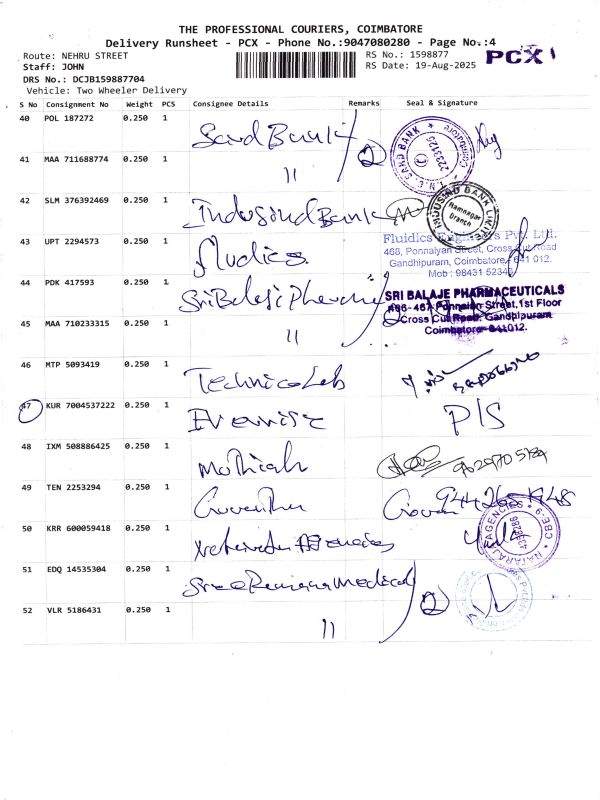 THE PROFESSIONAL COURIERS, COIMBATORE
Delivery Runsheet - PCX - Phone No.:9047080280 - Page No.:4
Route: NEHRU STREET
RS No.: 1598877
PCX
Staff: JOHN
RS Date: 19-Aug-2025
DRS No.: DCJB159887704
Vehicle: Two Wheeler Delivery
S No Consignment No Weight PCS Consignee Details Remarks Seal & Signature
40 POL 187272 0.250 1 Sard Bank
SARD BANK 2233125 Coimbatore
41 MAA 711688774 0.250 1 11 2
42 SLM 376392469 0.250 1 Indusind Bank
INDUSIND BANK LIMITED Ramnagar Branch
43 UPT 2294573 0.250 1 fludics
Fluidics Engineers Pvt. Ltd.
468, Ponnaiyan Street, Cross Cut Road
Gandhipuram, Coimbatore - 641 012.
Mob : 98431 52345
44 PDK 417593 0.250 1 Sri Balaje 2
SRI BALAJE PHARMACEUTICALS
Street, 1st Floor
Cross Cut Road, Gandhipuram
Coimbatore-641012.
45 MAA 710233315 0.250 1 11
46 MTP 5093419 0.250 1 Technico Lab
47 KUR 7004537222 0.250 1 P/S
48 IXM 508886425 0.250 1
49 TEN 2253294 0.250 1
50 KRR 600059418 0.250 1
AGENCIES CBE-9 NATARAJ
51 EDQ 14535304 0.250 1 Medical 2
52 VLR 5186431 0.250 1 11